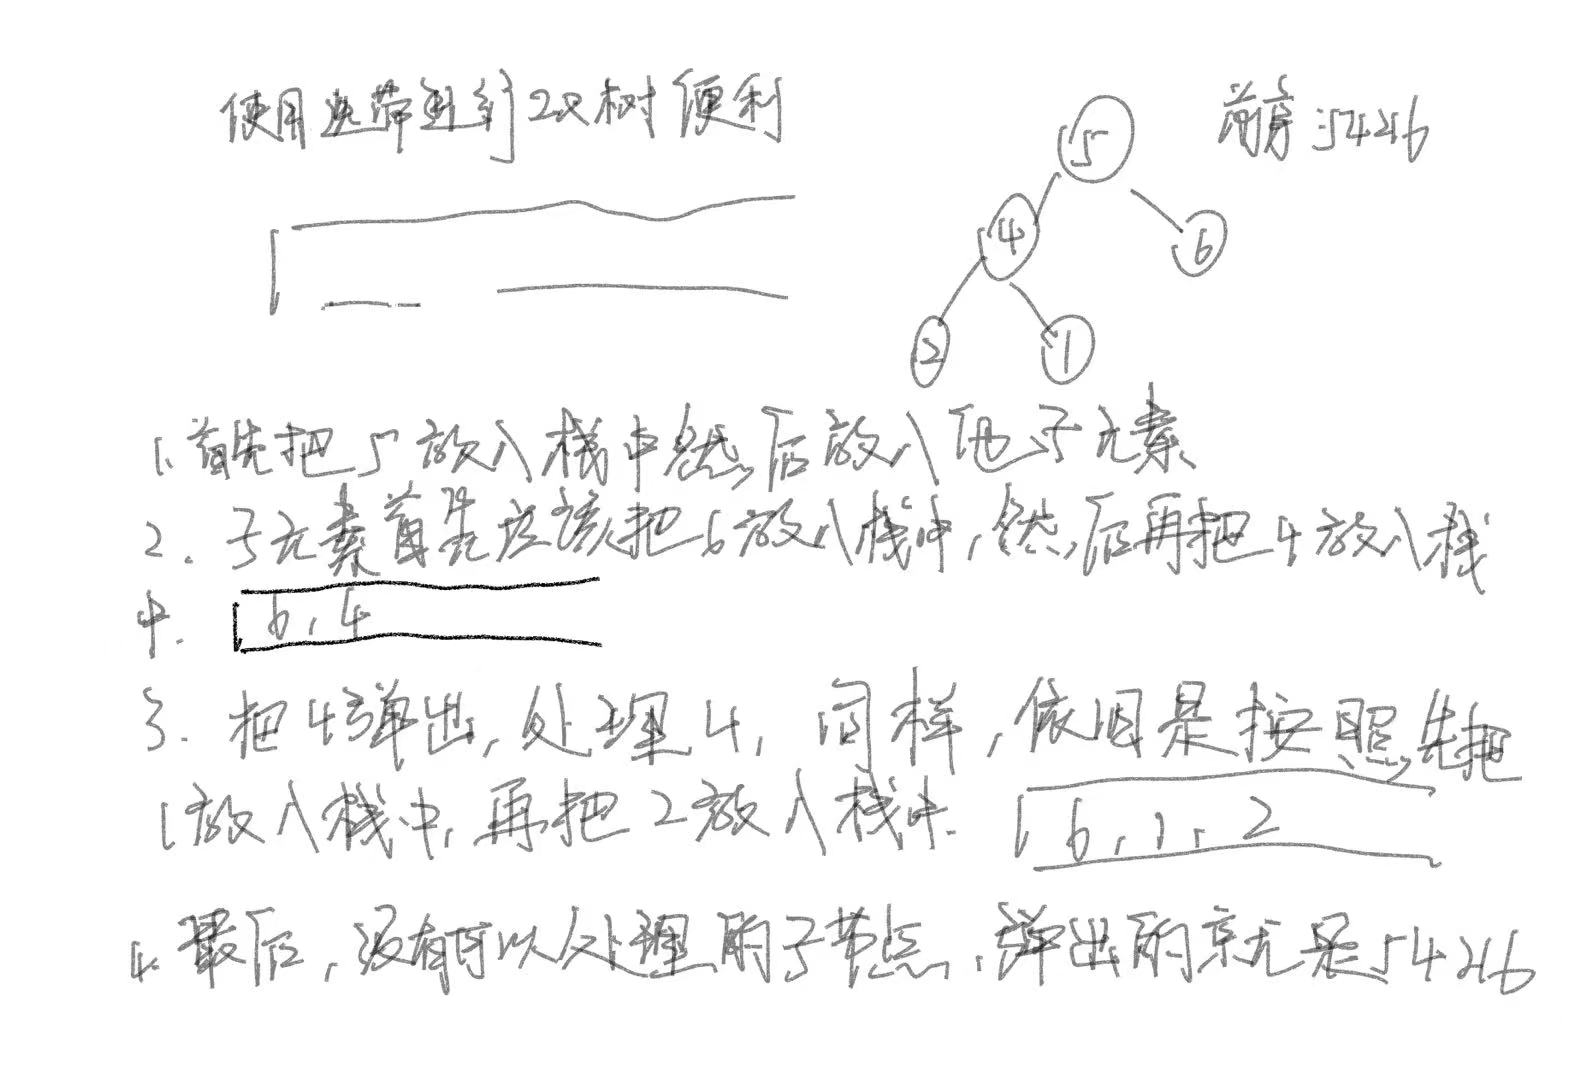 使用迭带进行2叉树便利
前序:54216
5
4
6
2
1
1.首先把5放入栈中然后放入他子元素
2.子元素首先应该把6放入栈中,然后再把4放入栈
中.
6,4
3.把4弹出,处理4,同样,依旧是按照先把
1放入栈中,再把2放入栈中.
6,1,2
4.最后,没有可以处理的子节点,弹出的就是54216